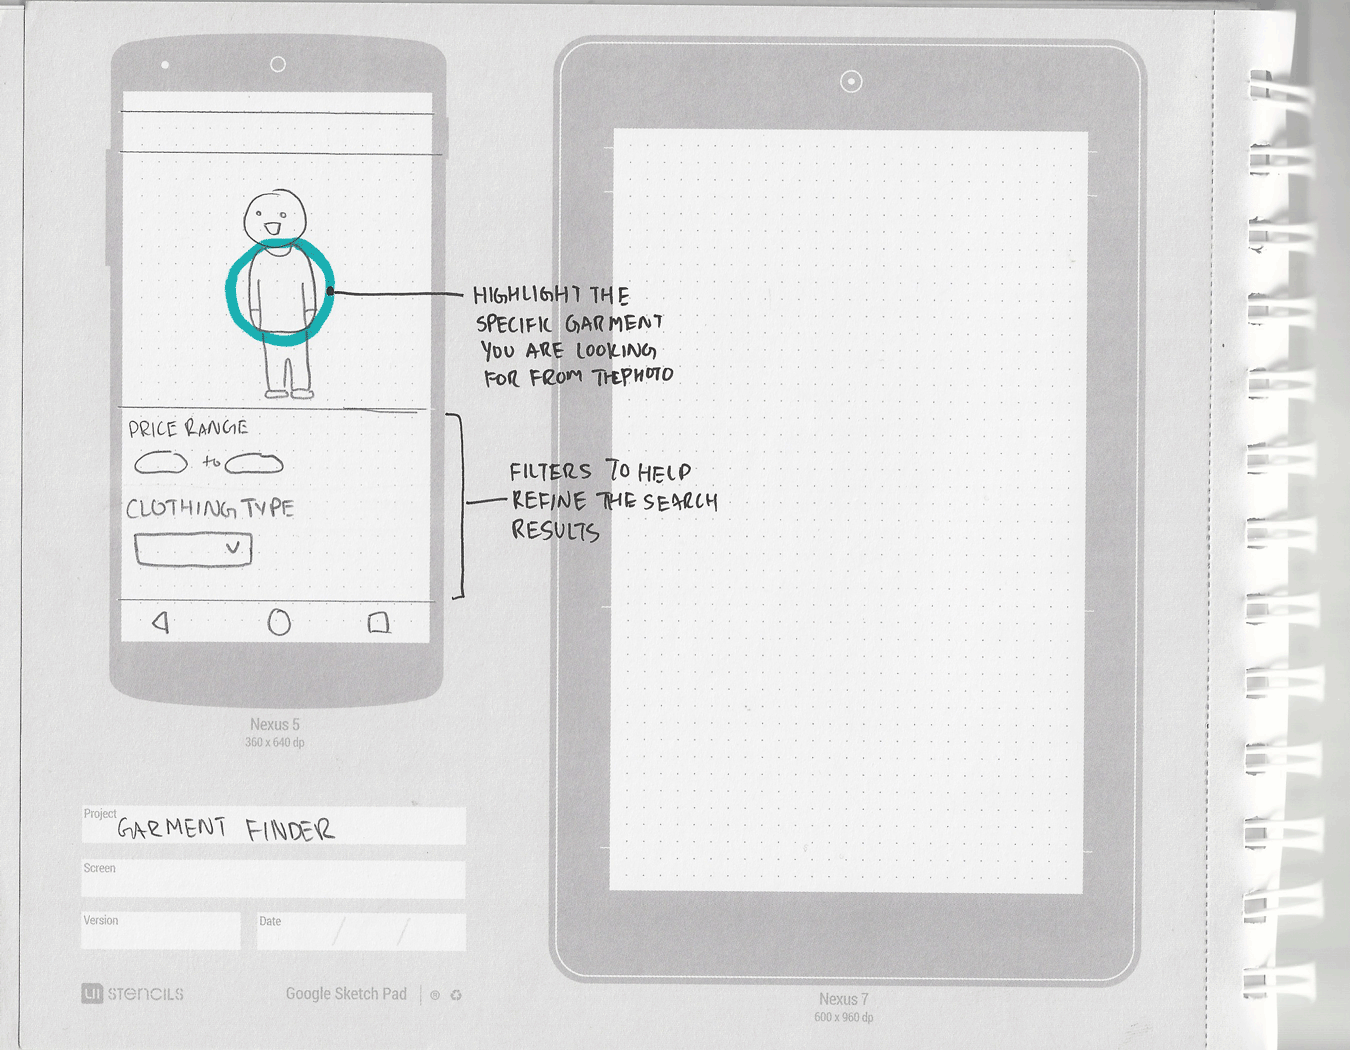 HIGHLIGHT THE
SPECIFIC GARMENT
YOU ARE LOOKING
FOR FROM THE PHOTO
PRICE RANGE
to
CLOTHING TYPE
FILTERS TO HELP
REFINE THE SEARCH
RESULTS
Nexus 5
360 x 640 dp
Project
GARMENT FINDER
Screen
Version
Date / /
UI STENCILS
Google Sketch Pad
Nexus 7
600 x 960 dp